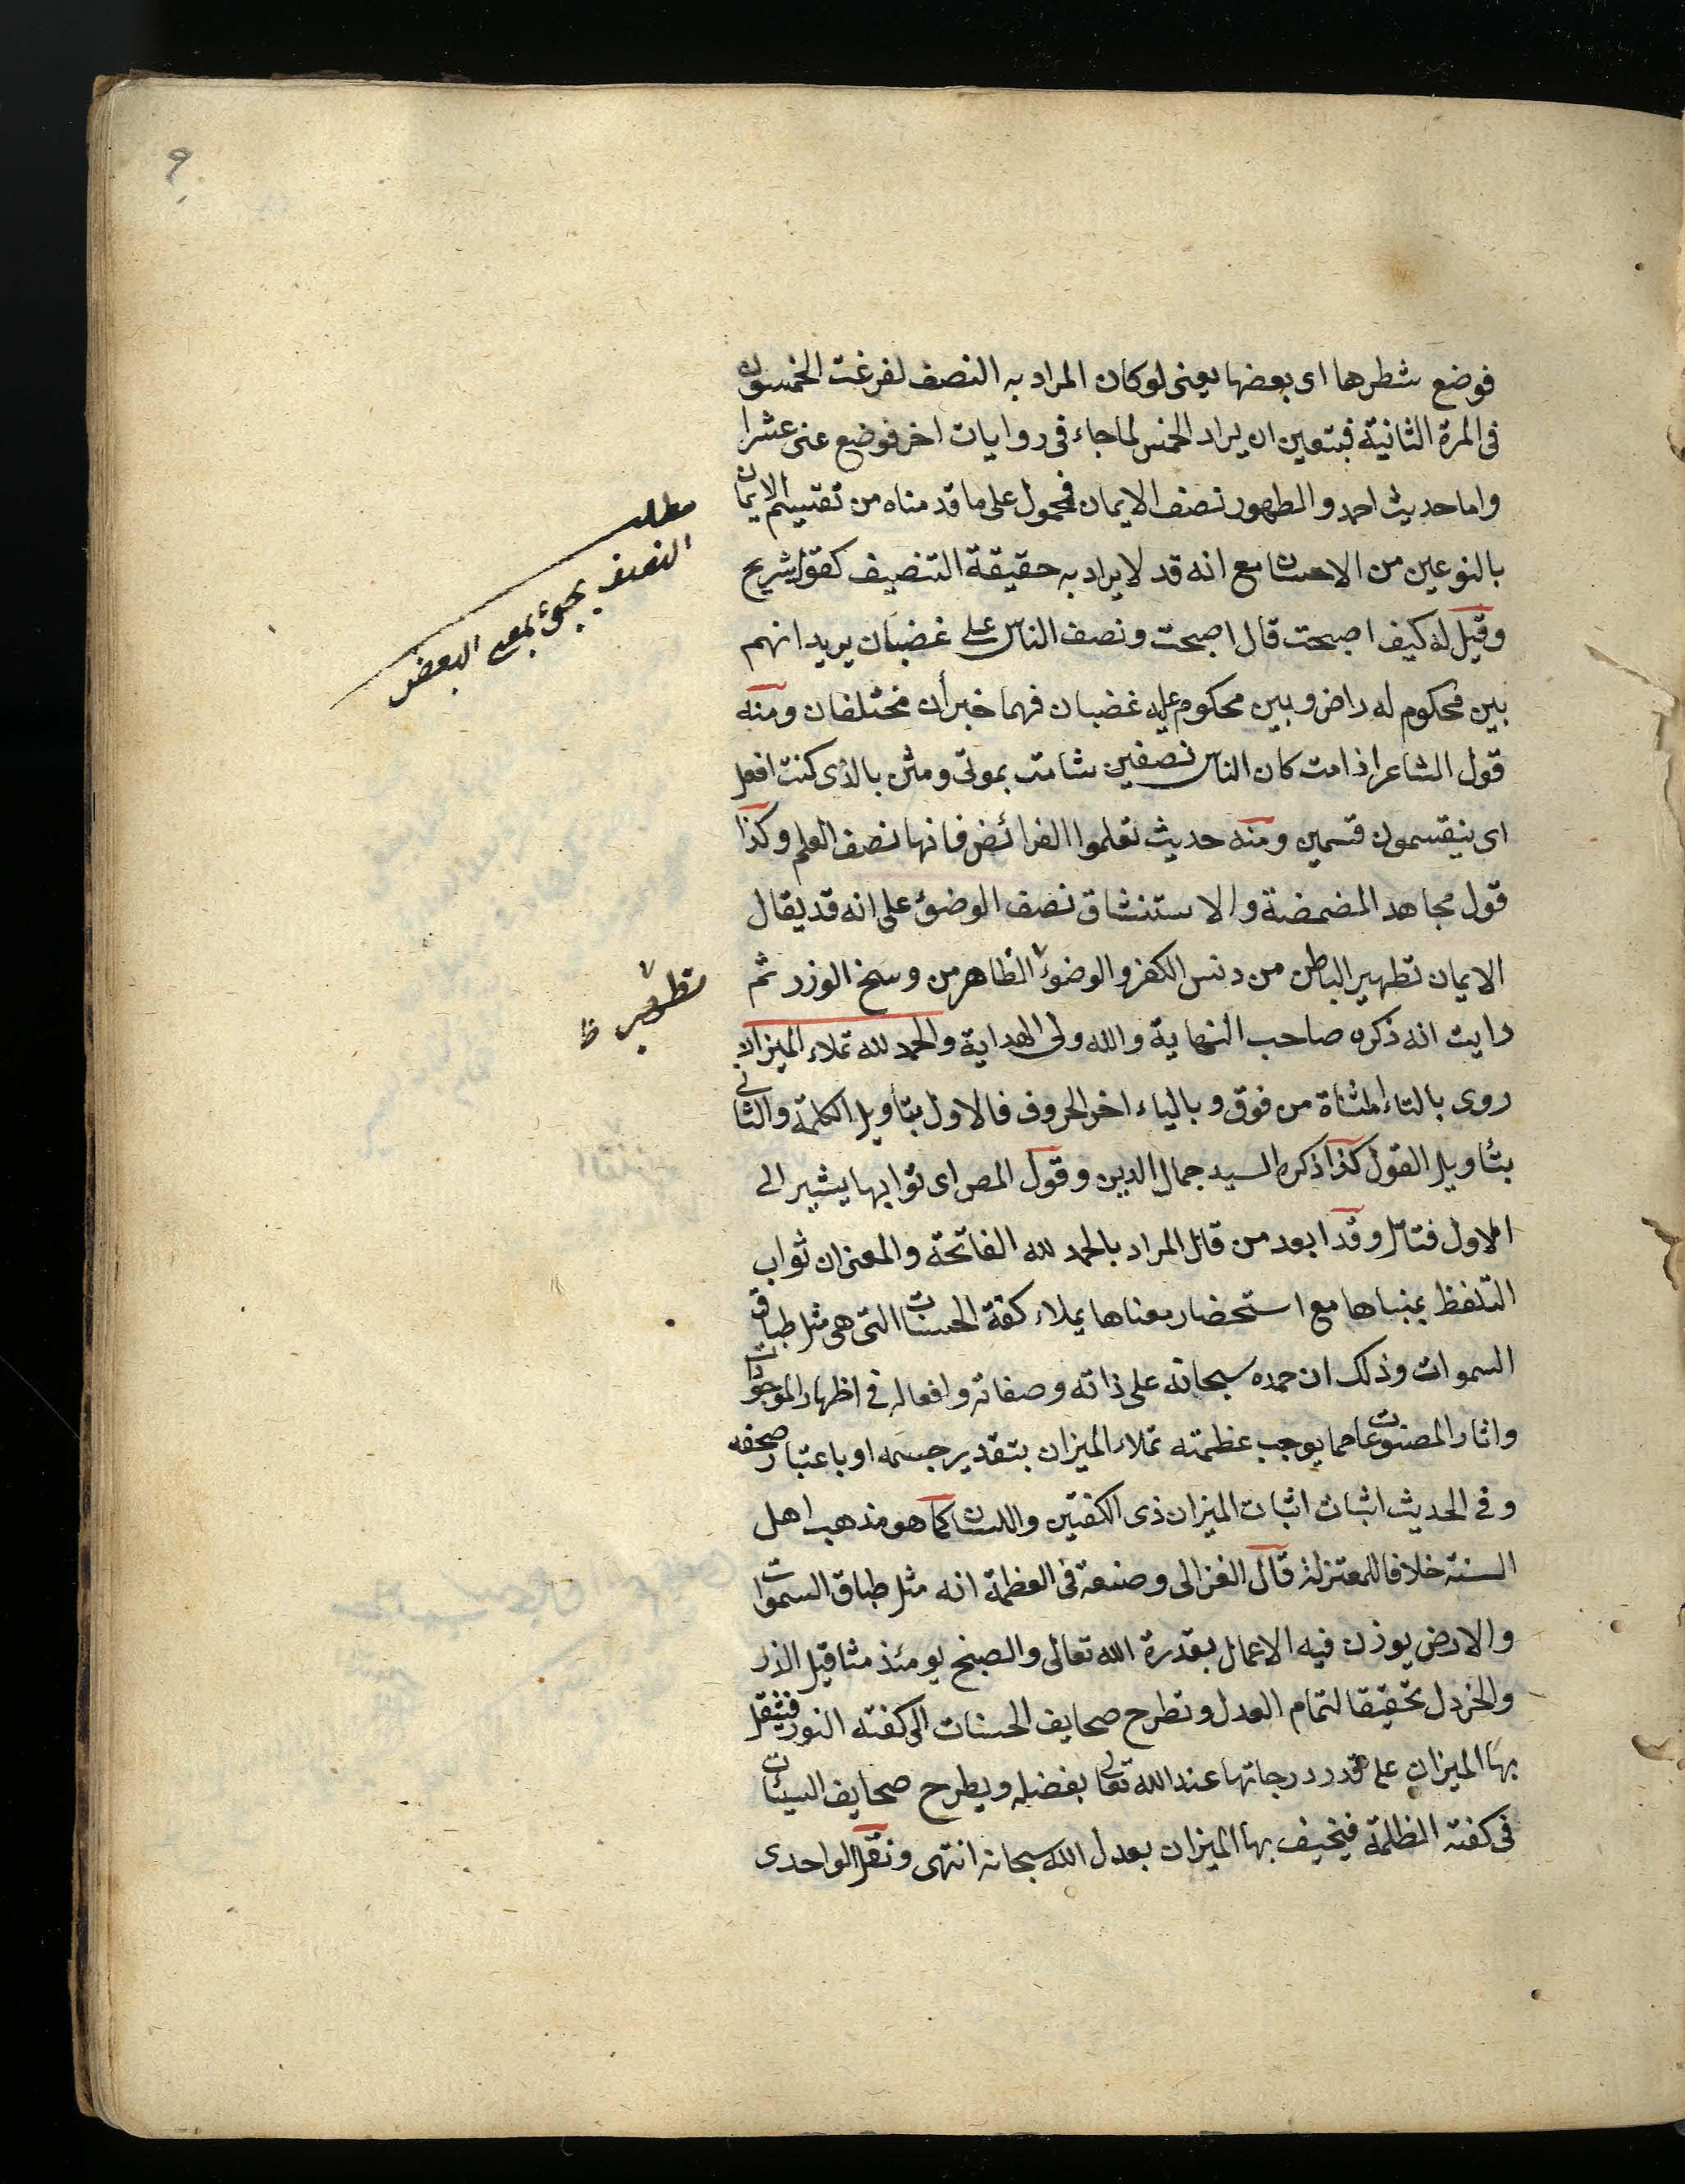 ٩
فوضع شطرها اى بعضها يعنى لوكان المراد به النصف لفرغت الخمسون
فى المرة الثانية فيتعين ان يراد الخمس لما جاء فى روايات اخر فوضع عنى عشرا
واما حديث احمد والطهور نصف الايمان فمحمول على ما قدمناه من تقسيم الايمان
بالنوعين من الاحسان مع انه قد لا يراد به حقيقة التنصيف كقول شريح
وقيل له كيف اصبحت قال اصبحت ونصف الناس على غضبان يريد انهم
بين محكوم له راض وبين محكوم عليه غضبان فهما خبران مختلفان ومنه
قول الشاعر اذا مت كان الناس نصفين شامت بموتى ومثن بالذى كنت افعل
اى ينقسمون قسمين ومنه حديث تعلموا الفرائض فانها نصف العلم وكذا
قول مجاهد المضمضة والاستنشاق نصف الوضوء على انه قد يقال
الايمان تطهير الباطن من دنس الكفر والوضوء الظاهر من وسخ الوزر ثم
رايت انه ذكره صاحب النهاية والله ولى الهداية والحمد لله تملاء الميزان
روى بالتاء المثناة من فوق وبالياء اخر الحروف فالاول بتأويل الكلمة والثانى
بتأويل القول كذا ذكره السيد جمال الدين وقول المص اى ثوابها يشير الى
الاول فتامل وقد ابعد من قال المراد بالحمد لله الفاتحة والمعنى ان ثواب
التلفظ بمبناها مع استحضار معناها يملاء كفة الحسنات التى هى مثل طباق
السموات وذلك ان حمده سبحانه على ذاته وصفاته وافعاله فى اظهار الموجودات
واثار المصنوعات مما يوجب عظمته تملاء الميزان بتقدير جسمه او باعتبار صحفه
وفى الحديث اثبات اثبات الميزان ذى الكفتين واللسان كما هو مذهب اهل
السنة خلافا للمعتزلة قال الغزالى وصنعه فى العظمة انه مثل طباق السموات
والارض يوزن فيه الاعمال بقدرة الله تعالى والصنج يومئذ مثاقيل الذر
والخردل تحقيقا لتمام العدل وتطرح صحايف الحسنات الى كفته النور فيثقل
بها الميزان على قدر درجاتها عند الله تعالى بفضله ويطرح صحايف السيئات
فى كفته المظلمة فيخيف بها الميزان بعدل الله سبحانه انتهى ونقل الواحدى
مطلب
النصف يجئ بمعنى البعض
تطهير ظ